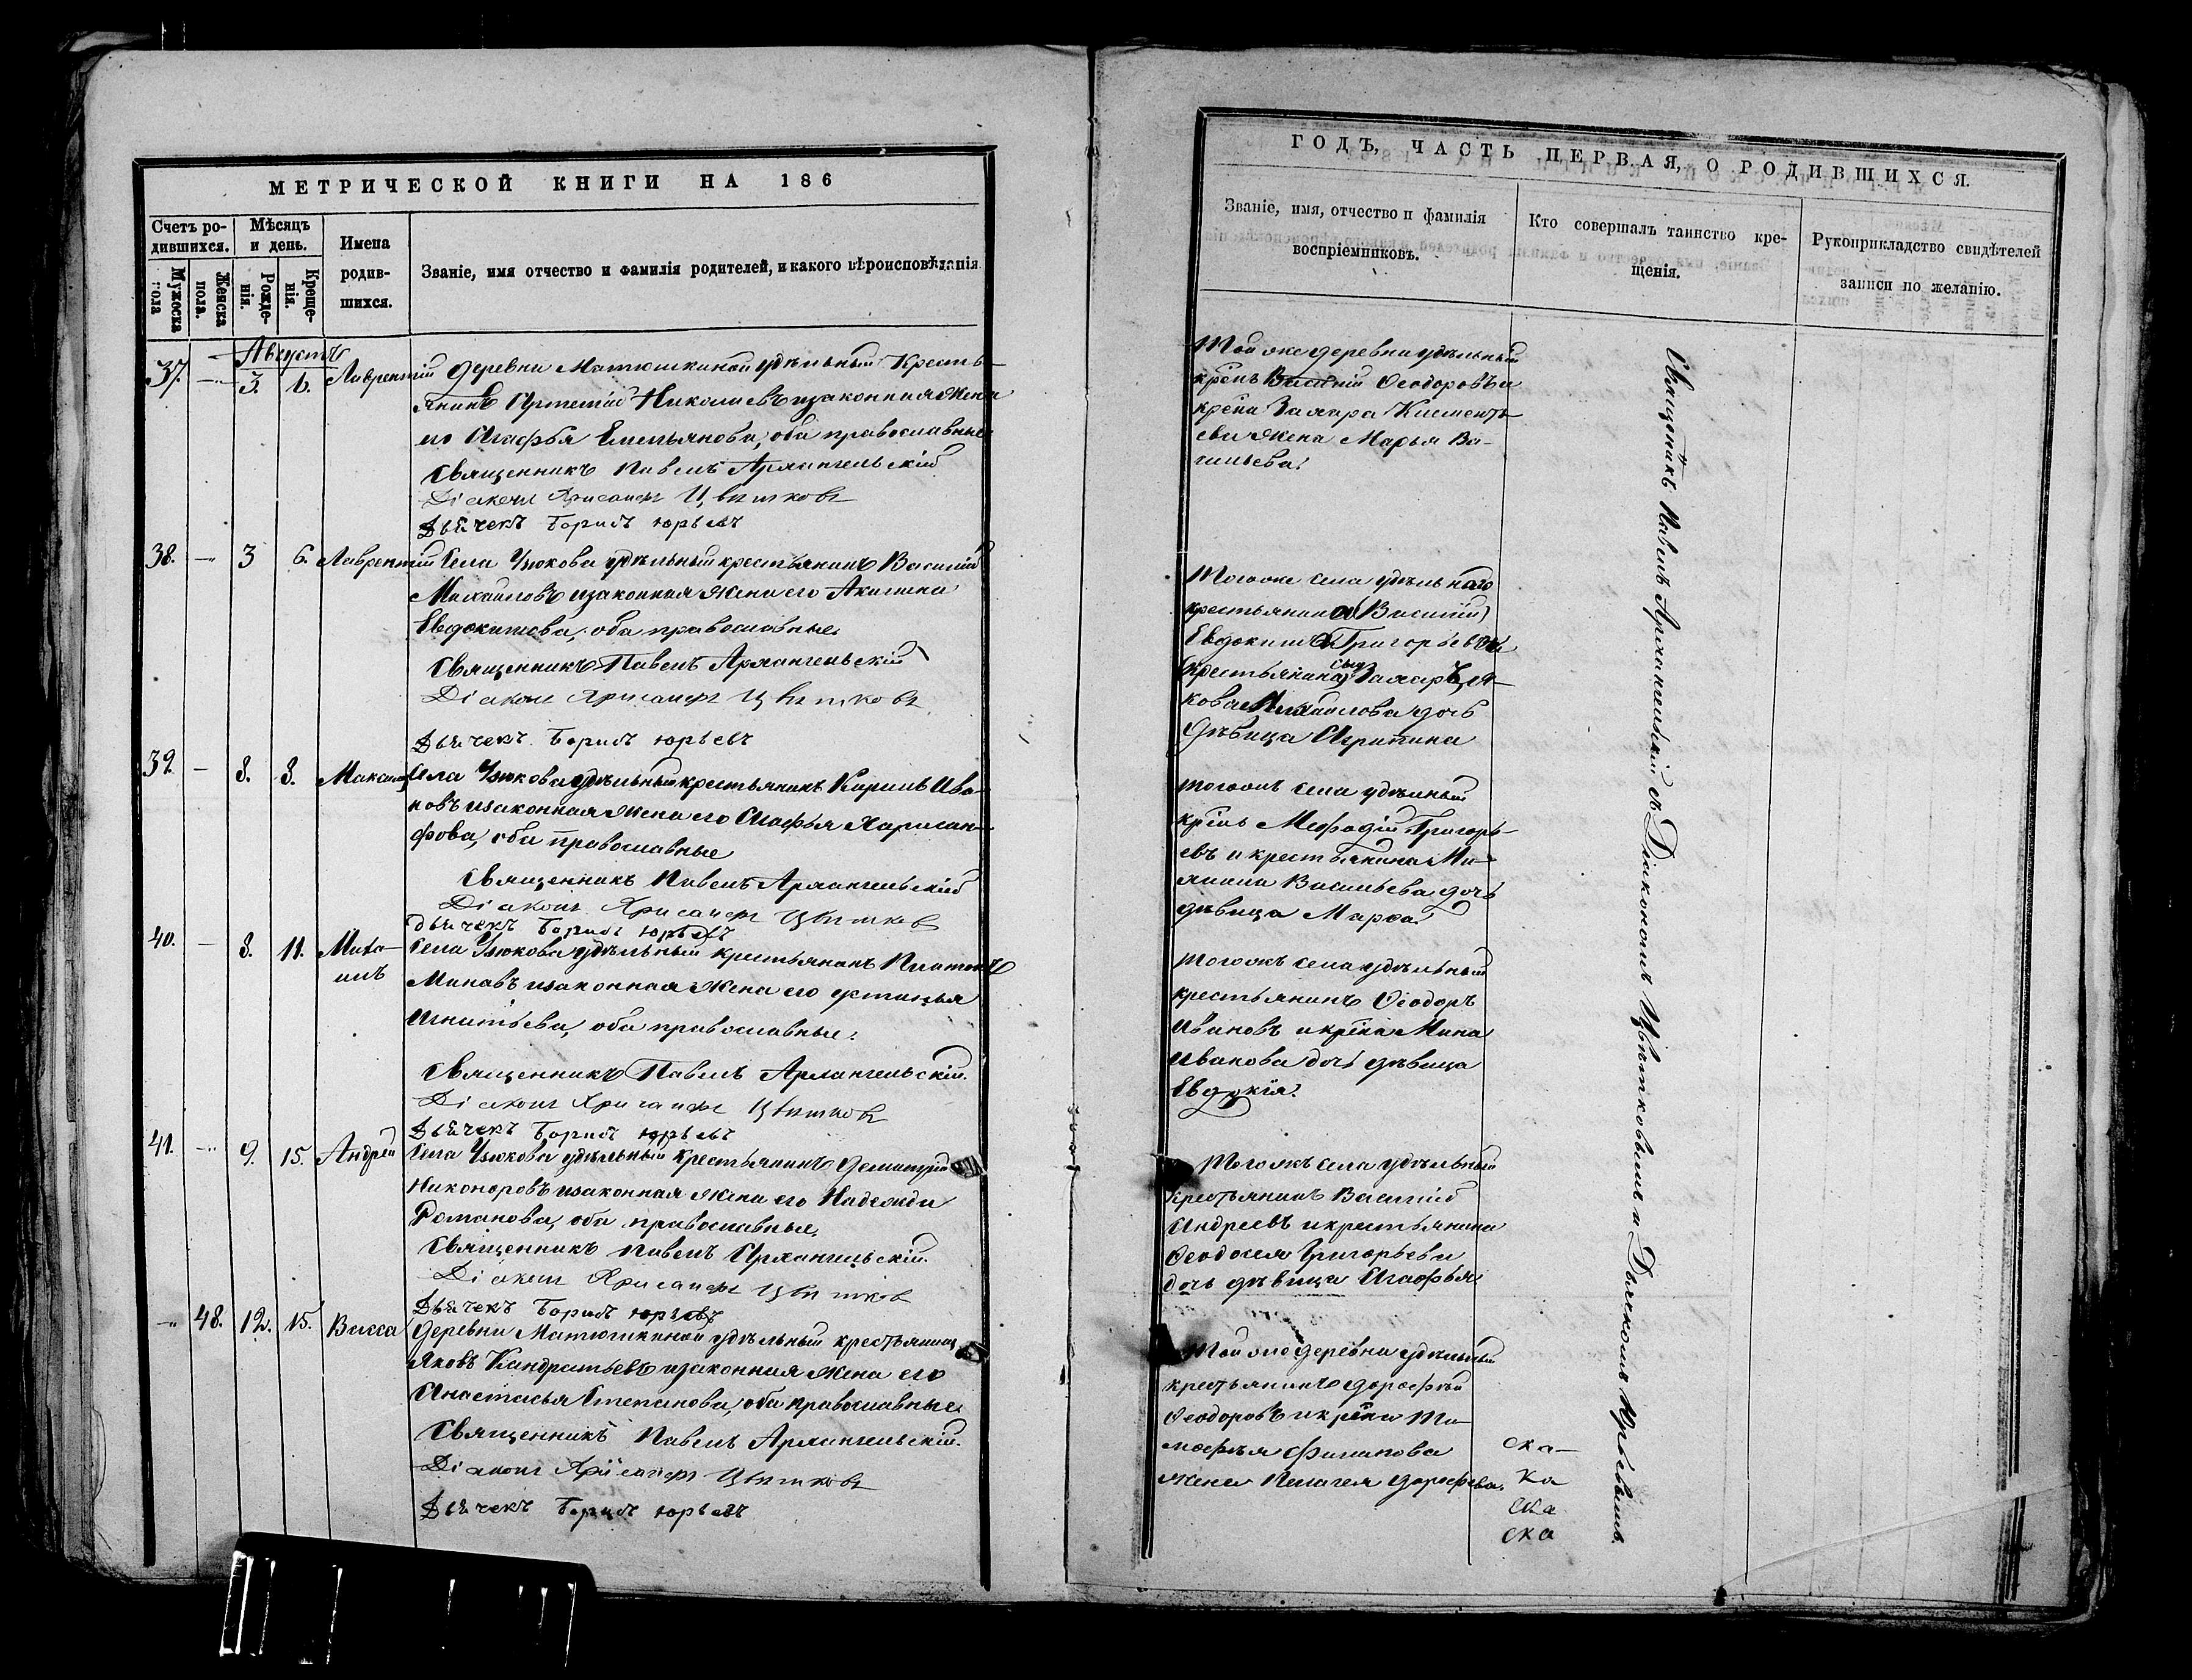 МЕТРИЧЕСКОЙ КНИГИ НА 186
Счетъ ро-
дившихся.
Мѣсяцъ
и день.
Мужеска
пола
Женска
пола.
Рожде-
нія.
Креще-
нія.
Имена
родив-
шихся.
Званіе, имя отчество и фамилія родителей, и какого вѣроисповѣданія
Августъ
37. 3. 6. Лаврентій деревни Матюшкиной удѣльный Кресть-
янинъ Артемій Николаевъ и законная жена
его Агафья Емельянова, оба православные
Священникъ Павелъ Архангельскій
Діаконъ Хрисанфъ Цвѣтковъ
Дьячекъ Борисъ Юрьевъ
38. 3 6. Лаврентій Села Чуюкова удѣльный крестьянинъ Василій
Михайловъ и законная жена его Акилина
Евдокимова, оба православные.
Священникъ Павелъ Архангельскій
Діаконъ Хрисанфъ Цвѣтковъ
Дьячекъ Борисъ Юрьевъ
39. 8. 8. Максимъ Села Чуюкова удѣльный крестьянинъ Карпъ Ива-
новъ и законная жена его Агафья Харисан-
фова, оба православные
Священникъ Павелъ Архангельскій
Діаконъ Хрисанфъ Цвѣтковъ
дьячекъ Борисъ Юрьевъ
40. 8. 11. Миха-
илъ
Села Чуюкова удѣльный крестьянинъ Платонъ
Минавъ и законная жена его Фетинья
Игнатьева, оба православные.
Священникъ Павелъ Архангельскій.
Діаконъ Хрисанфъ Цвѣтковъ
Дьячекъ Борисъ Юрьевъ
41. 9. 15. Андрей Села Чуюкова удѣльный крестьянинъ Демитрій
Никоноровъ и законная жена его Надежда
Романова, оба православные.
Священникъ Павелъ Архангельскій.
Діаконъ Хрисанфъ Цвѣтков
Дьячекъ Борисъ Юрьевъ
48. 12. 15. Васса Деревни Матюшкиной удѣльный крестьянинъ
Яковъ Кандратьевъ и законная жена его
Анастасья Степанова, оба православные.
Священникъ Павелъ Архангельскій.
Діаконъ Хрисанфъ Цвѣтковъ
Дьячекъ Борисъ Юрьевъ
ГОДЪ, ЧАСТЬ ПЕРВАЯ, О РОДИВШИХСЯ.
Званіе, имя, отчество и фамилія
воспріемниковъ.
Кто совершалъ таинство кре-
щенія.
Рукоприкладство свидѣтелей
записи по желанію.
Той же деревни удѣльный
крёнъ Василій Ѳеодоровъ и
крёна Захара Клементь-
ева жена Марья Ва-
сильева.
Тогоже села удѣльнаго
крестьянина Василій
Евдокима Григорьева и
крестьянина сынъ Захаръ, я-
кова Михайлова дочь
дѣвица Агрипина
Тогожъ села удѣльный
крёнъ Мефодій Григорь-
евъ и крестьянина Ми-
хаила Васильева дочь
дѣвица Марѳа.
Тогожъ села удѣльный
крестьянинъ Ѳеодоръ
Ивановъ и крёна Мина
Иванова дочь дѣвица
Евдокія.
Тогожъ села удѣльный
крестьянинъ Василій
Андреевъ и крестьянина
Ѳеодосея Григорьева
дочь дѣвица Агафья.
Той же деревни удѣльный
крестьянинъ Дорофей
Ѳеодоровъ и крёна Ти-
мофѣя Филипова
жена Пелагея Дорофева.
Священникъ Павелъ Архангельскій съ Діакономъ Цвѣтковымъ и Дьячкомъ Юрьевымъ.
ска-
ка
ска
ска